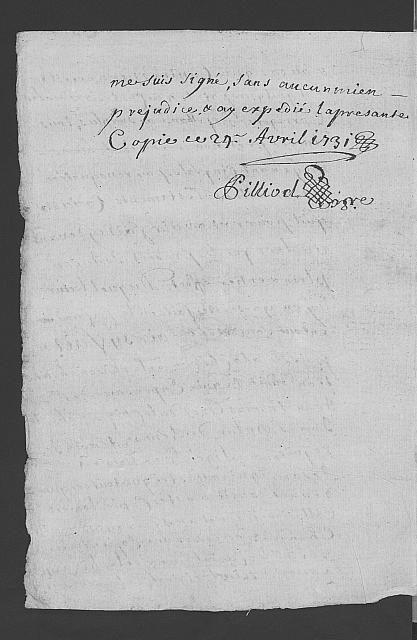 me suis signé, sans aucun mien
prejudice, & ay expedié lapresante
Copie ce 27e Avril 1731
Pilliod